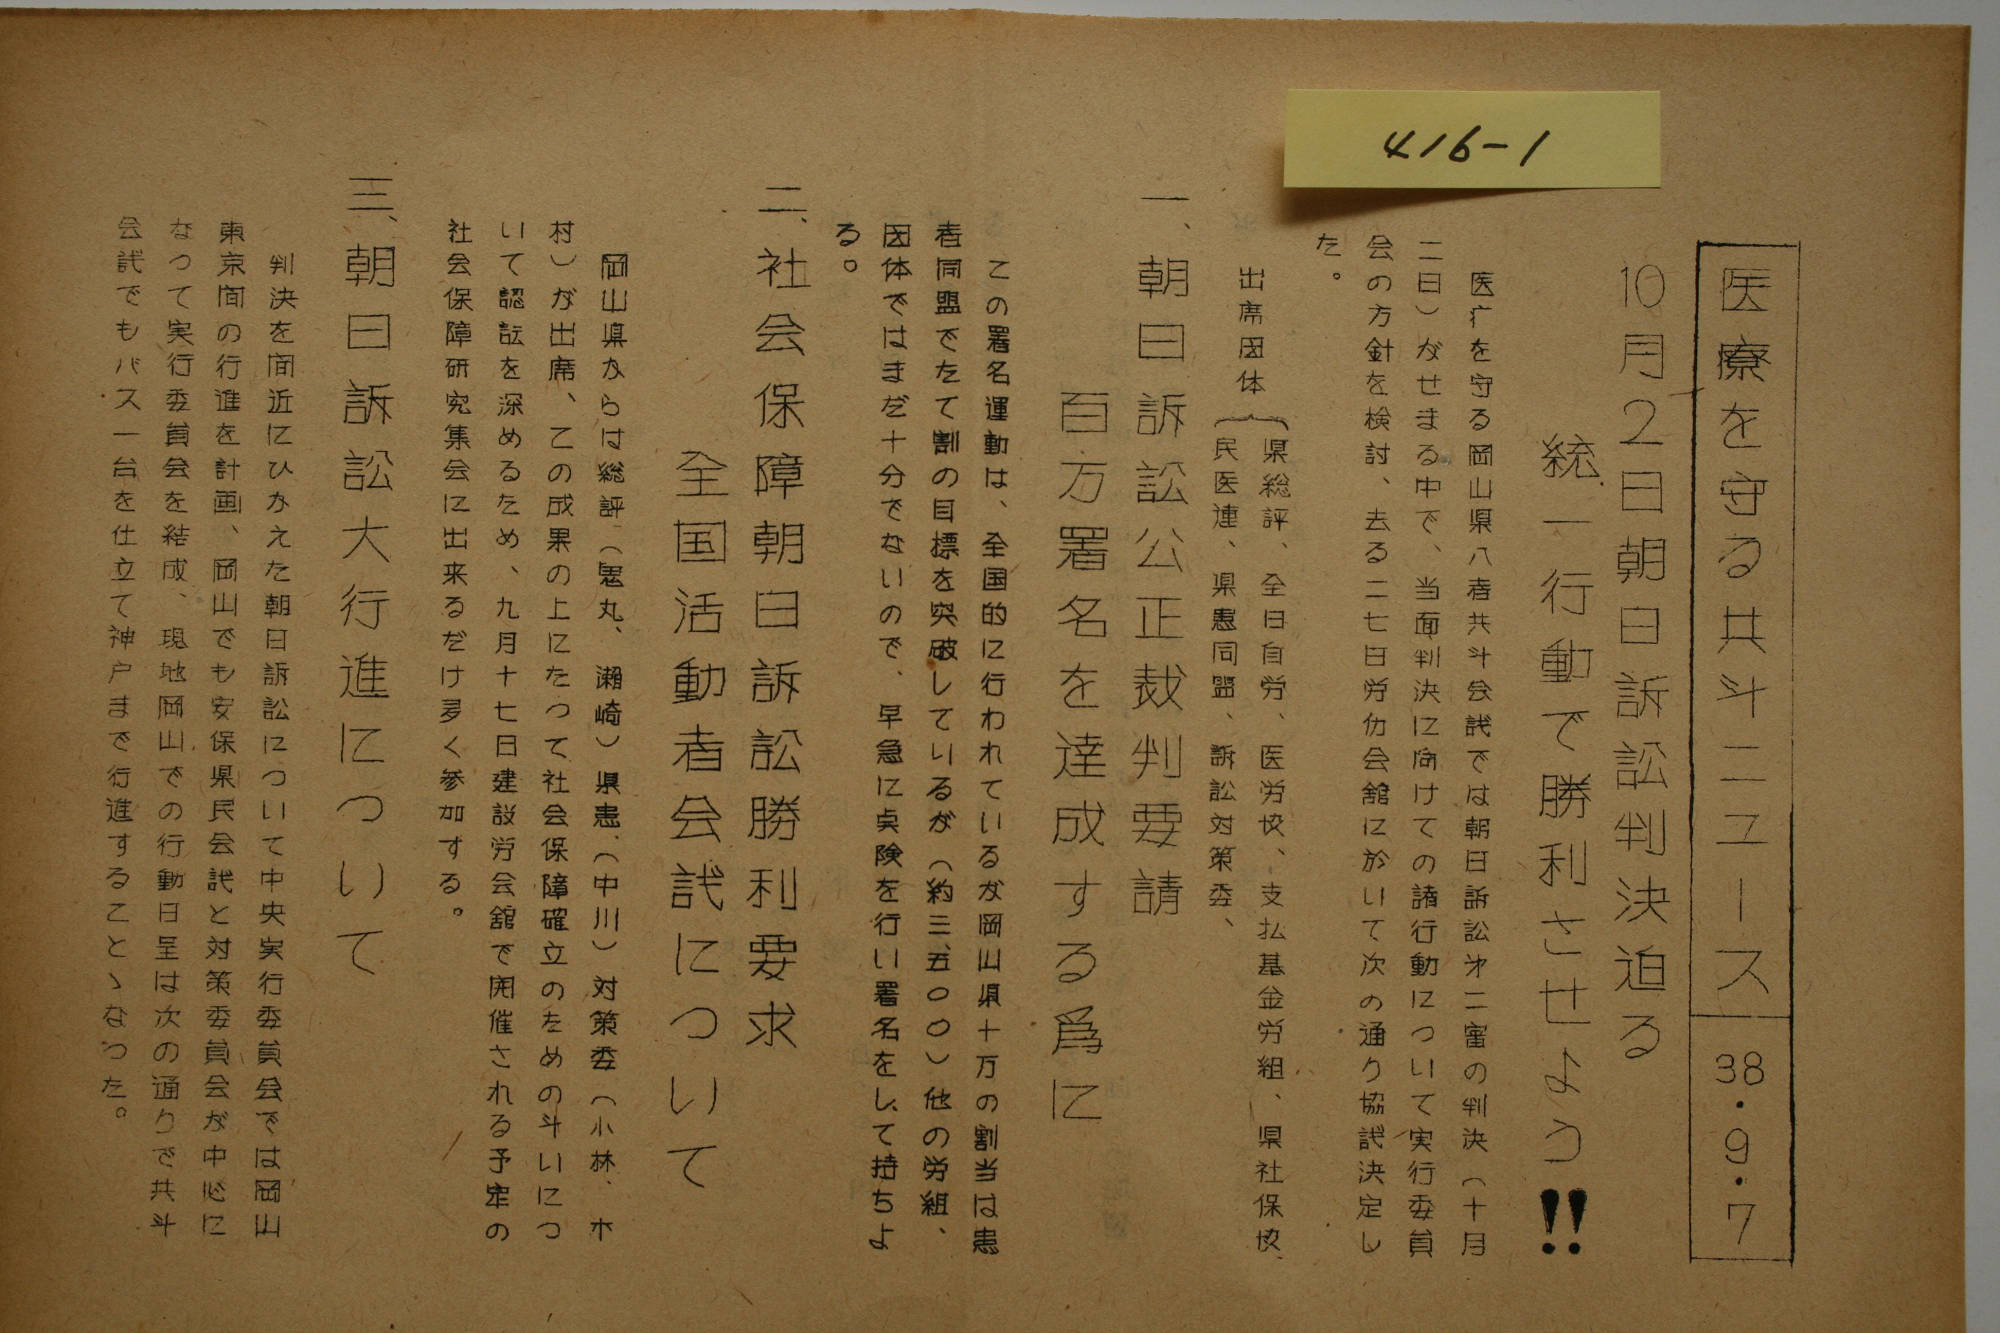 416-1
医療を守る共斗ニュース 38・9・7
10月2日朝日訴訟判決迫る
統一行動で勝利させよう!!
医疒を守る岡山県八者共斗会議では朝日訴訟才二審の判決(十月
二日)がせまる中で、当面判決に向けての諸行動について実行委員
会の方針を検討、去る二七日労仂会舘に於いて次の通り協議決定し
た。
出席団体
県総評、全日自労、医労協、支払基金労組、県社保協、
民医連、県患同盟、訴訟対策委、
一、朝日訴訟公正裁判要請
百万署名を達成する為に
この署名運動は、全国的に行われているが岡山県十万の割当は患
者同盟でたて割の目標を突破しているが(約三、五〇〇)他の労組、
団体ではまだ十分でないので、早急に点険を行い署名をして持ちよ
る。
二、社会保障朝日訴訟勝利要求
全国活動者会議について
岡山県からは総評(鬼丸、瀬崎)県患、(中川)対策委(小林、木
村)が出席、この成果の上にたって社会保障確立のための斗いにつ
いて認訟を深めるため、九月十七日建設労会舘で開催される予定の
社会保障研究集会に出来るだけ多く参加する。
三、朝日訴訟大行進について
判決を間近にひかえた朝日訴訟について中央実行委員会では岡山
東京間の行進を計画、岡山でも安保県民会議と対策委員会が中心に
なって実行委員会を結成、現地岡山での行動日呈は次の通りで共斗
会議でもバス一台を仕立て神戸まで行進することゝなった。